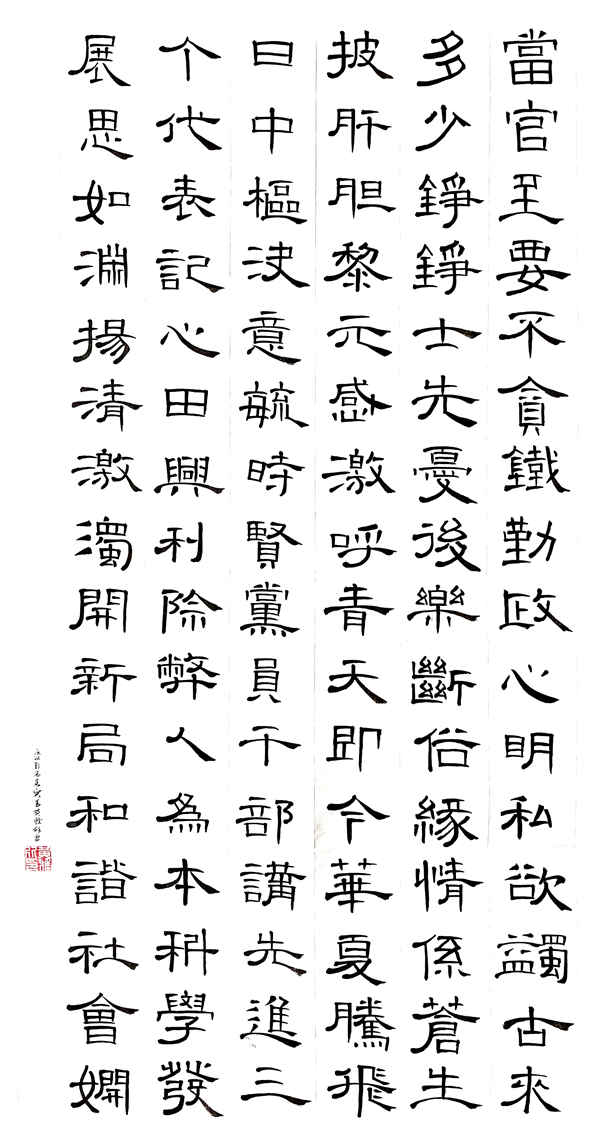 當官至要不貪鐵勤政心明私欲蠲古來
多少錚錚士先憂後樂斷俗緣情係蒼生
披肝胆黎元感激呼青天即今華夏騰飛
日中樞決意毓時賢黨員干部講先進三
个代表記心田興利除弊人為本科學發
展思如淵揚清激濁開新局和諧社會嫻